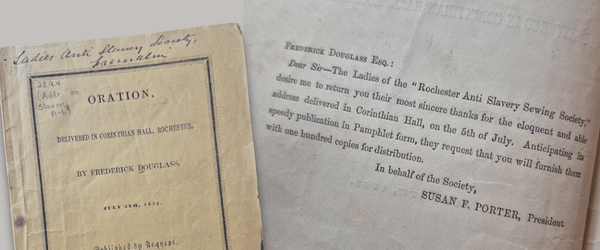 Ladies Anti Slavery Society,
Franklin
28.9.4
(Addr. on
Slavery
ORATION,
DELIVERED IN CORINTHIAN HALL, ROCHESTER,
BY FREDERICK DOUGLASS,
JULY 5TH, 1852.
Published by Request.
FREDERICK DOUGLASS ESQ.:
Dear Sir—The Ladies of the "Rochester Anti Slavery Sewing Society,"
desire me to return you their most sincere thanks for the eloquent and able
address delivered in Corinthian Hall, on the 5th of July. Anticipating its
speedy publication in Pamphlet form, they request that you will furnish them
with one hundred copies for distribution.
In behalf of the Society,
SUSAN F. PORTER, President.